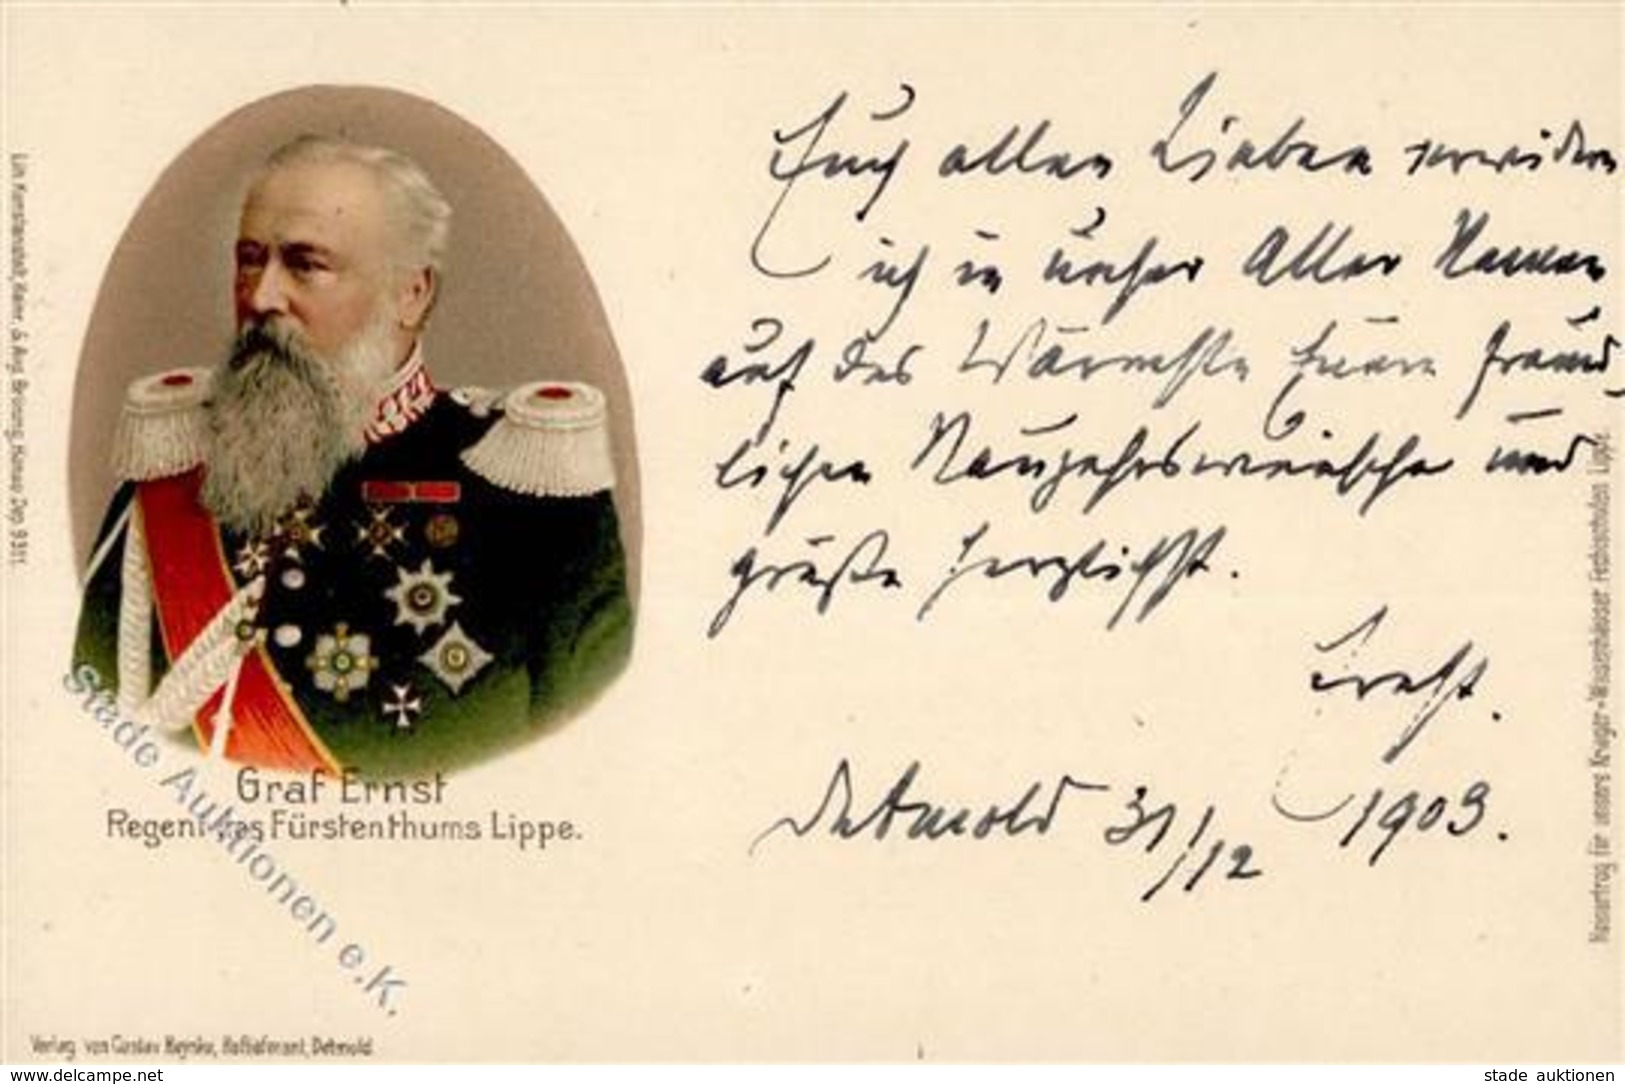 Euch allen Lieben erwidern
ich in unser Aller Namen
auf das Wärmste Eure freund-
lichen Neujahrswünsche und
grüße herzlichst.
Ernst.
Detmold 31/12 1903.
Graf Ernst
Regent des Fürstenthums Lippe.
Lith. Kunstanstalt, Heinr. & Aug. Brüning, Hanau Dep. 9311.
Reinertrag für unsere Krieger-Waisenhäuser Fechtschulen Lippe.
Verlag von Gustav Heynke, Hoflieferant, Detmold.
stade Auktionen e.K.
www.delcampe.net
stade auktionen